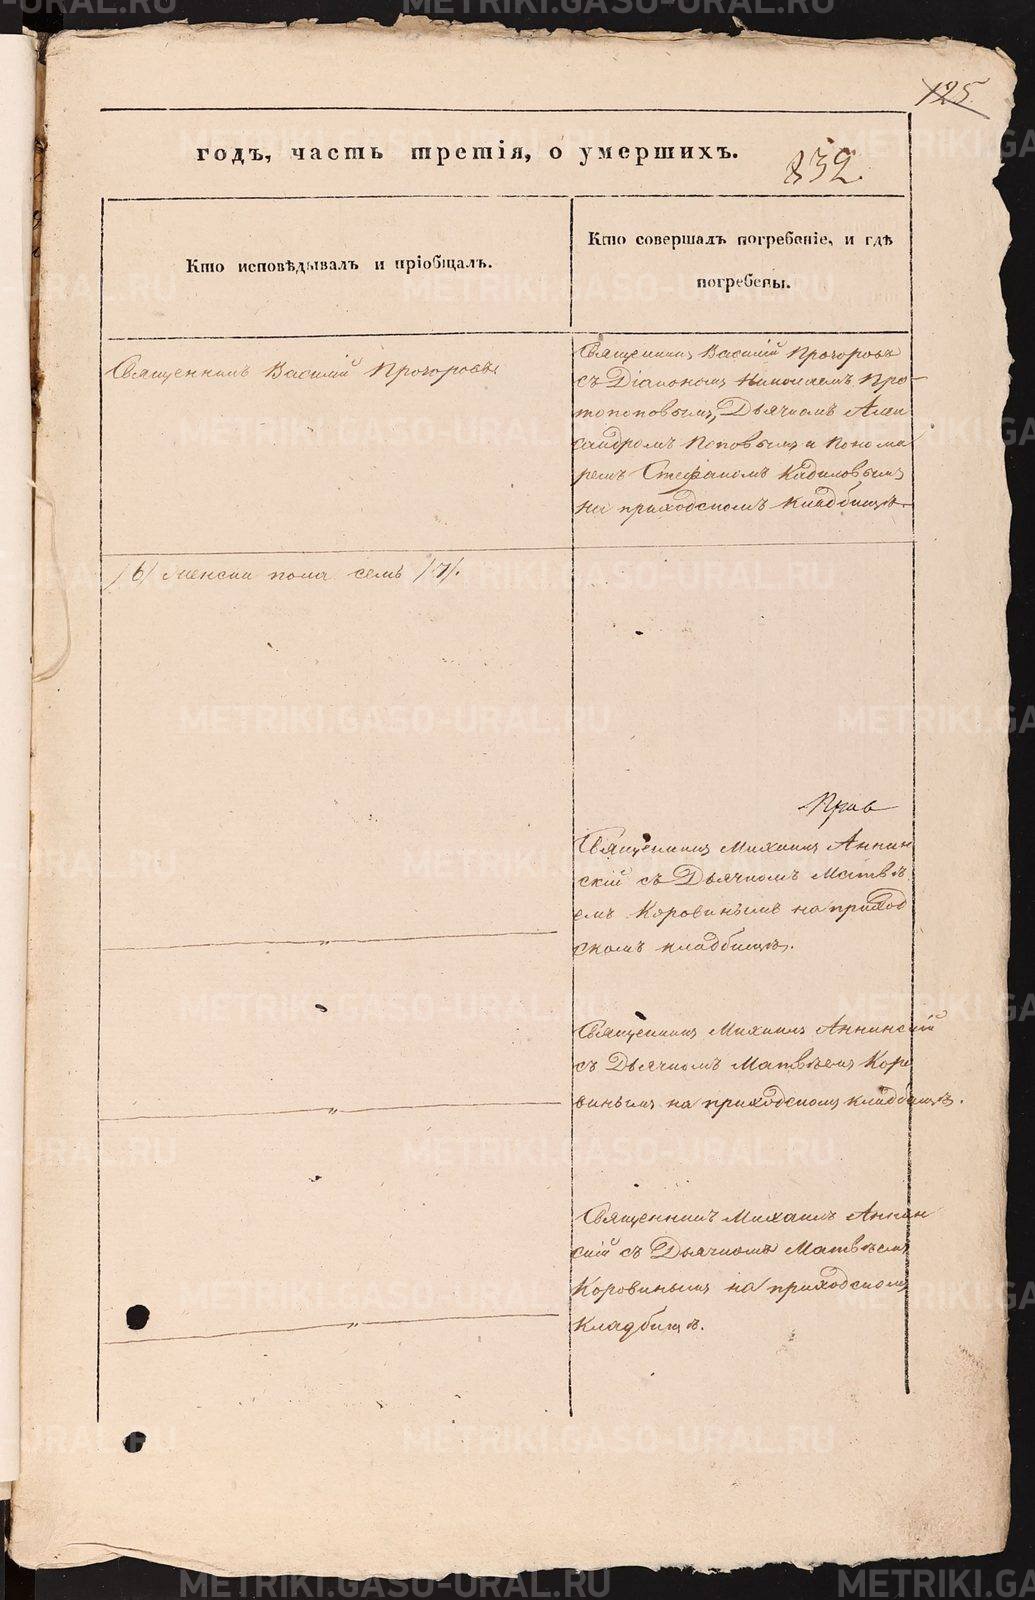 125
годъ, часть третія, о умершихъ.
832.
Кто исповѣдывалъ и пріобщалъ.
Кто совершалъ погребеніе, и гдѣ
погребены.
Священникъ Василій Прохоровъ
Священникъ Василій Прохоровъ
съ Діакономъ Николаемъ Про-
топоповымъ, Дьячкомъ Алек
сандромъ Поповымъ и Понома
ремъ Стефаномъ Кадиловымъ
на приходскомъ кладбищѣ.
/6/ женска пола семь /7/.
Священникъ Михаилъ Аннин
скій съ Дьячкомъ Матвѣ
емъ Коровинымъ на приход
скомъ кладбищѣ.
Священникъ Михаилъ Аннинскій
съ Дьячкомъ Матвѣемъ Коро
винымъ на приходскомъ кладбищѣ.
Священникъ Михаилъ Аннин
скій съ Дьячкомъ Матвѣемъ
Коровинымъ на приходскомъ
кладбищѣ.
METRIKI.GASO-URAL.RU